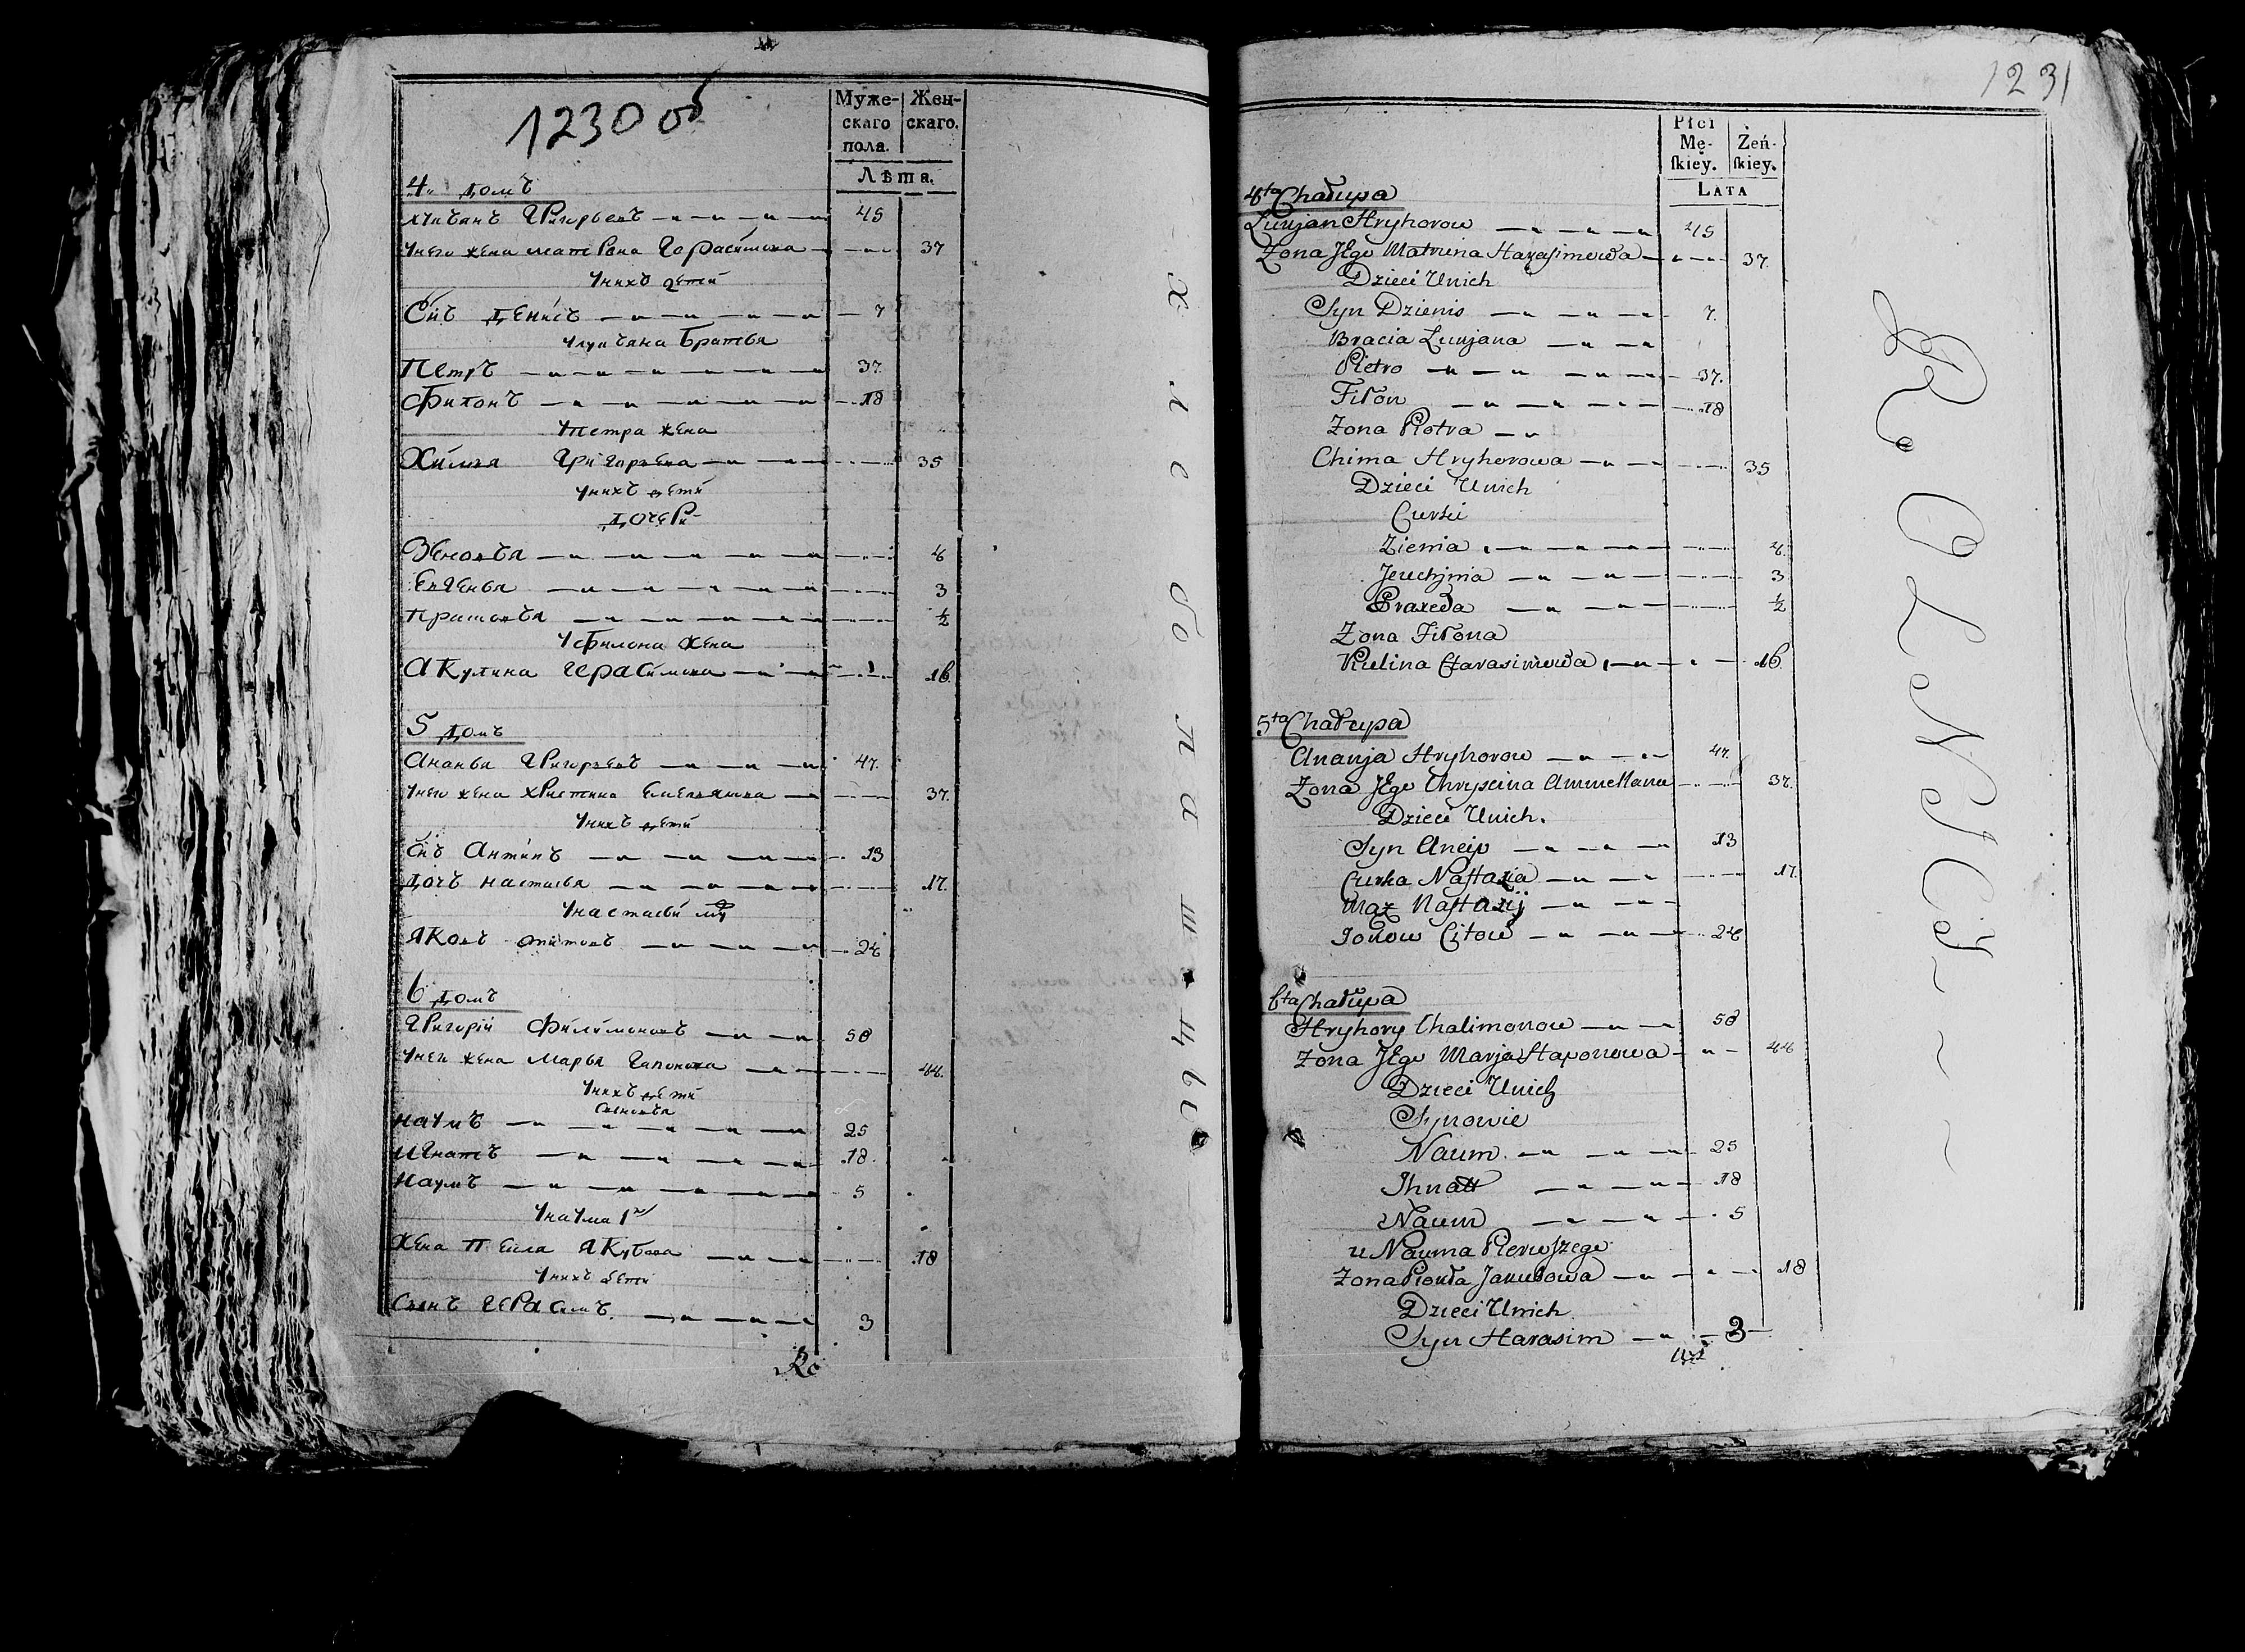 1230 об
Муже-
скаго
пола.
Жен-
скаго.
Лѣта.
4. домъ
Григорьевъ 45
у него жена матрона Гарасимова 37
у нихъ дети
Снъ денисъ 7
Братья
Петръ 37
Филонъ 18
у Петра жена
Химья Григорьева 35
у нихъ дети
дочери
Зеновья 4
Евгенья 3
Прасковья ½
у Филона жена
Акулина Герасимова 16
5 домъ
Ананья Григорьевъ 47.
у него жена Христина Емельянова 37.
у нихъ дети
Снъ Антипъ 13
дочь настасья 17.
у настасьи
Яковъ 24
6 домъ
Григорій Филимоновъ 58
у него жена Марья Гапонова 44.
у нихъ дети
Сыновья
наумъ 25
игнатъ 18
наумъ 5
у наума 1го
жена Якубова 18
у нихъ дети
Сынъ Герасимъ. 3
Ro
х л е б о п а ш ц ы
1231
Płci
Mę-
skiey.
Żeń-
skiey.
LATA
4ta Chałupa
Łuujan Hryhorow 45
Zona JEgo Matruna Harasimowa 37.
Dzieci Unich
Syn Dzienis 7.
Bracia Łuujana
Pietro 37.
Fiłon 18
Zona Piotra
Chima Hryhorowa 35
Dzieci Unich
Curki
Zienia 4.
Jeuchjnia 3
Praxeda ½
Zona Fiłona
Kulina Harasimowa 16
5ta Chałupa
Ananja Hryhorow 47.
Zona JEgo Chryscina 37.
Dzieci Unich.
Syn Ancip 13
Curka Nastazia 17.
Mąz Nastazij
Jakow Citow 24
6ta Chałupa
Hryhory Chalimonow 58
Zona JEgo Marja Haponowa 44
Dzieci Unich
Synowie
Naum 25
Ihnatt 18
Naum 5
u Nauma Pierwszego
Zona Jakubowa 18
Dzieci Unich
Syn Harasim 3
ROLNICY